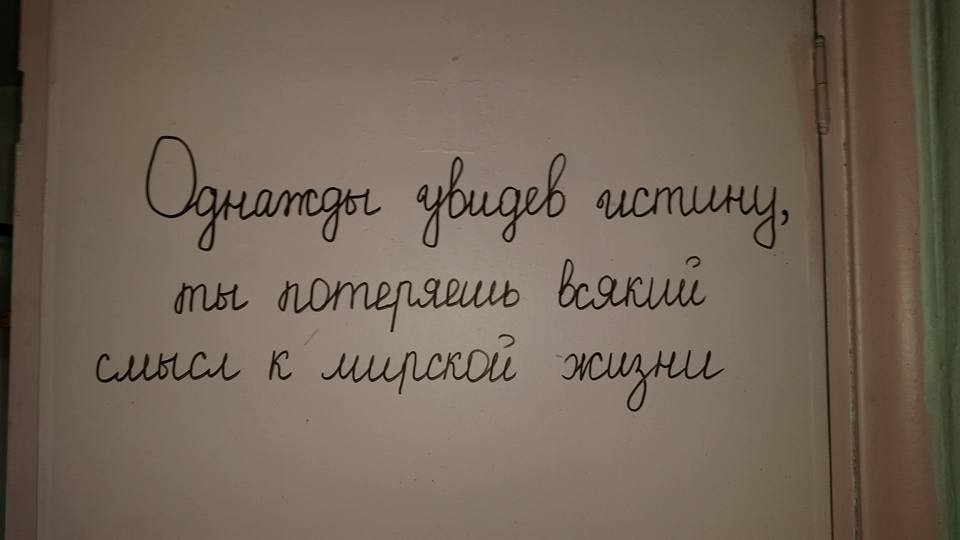 Однажды увидев истину,
ты потеряешь всякий
смысл к мирской жизни